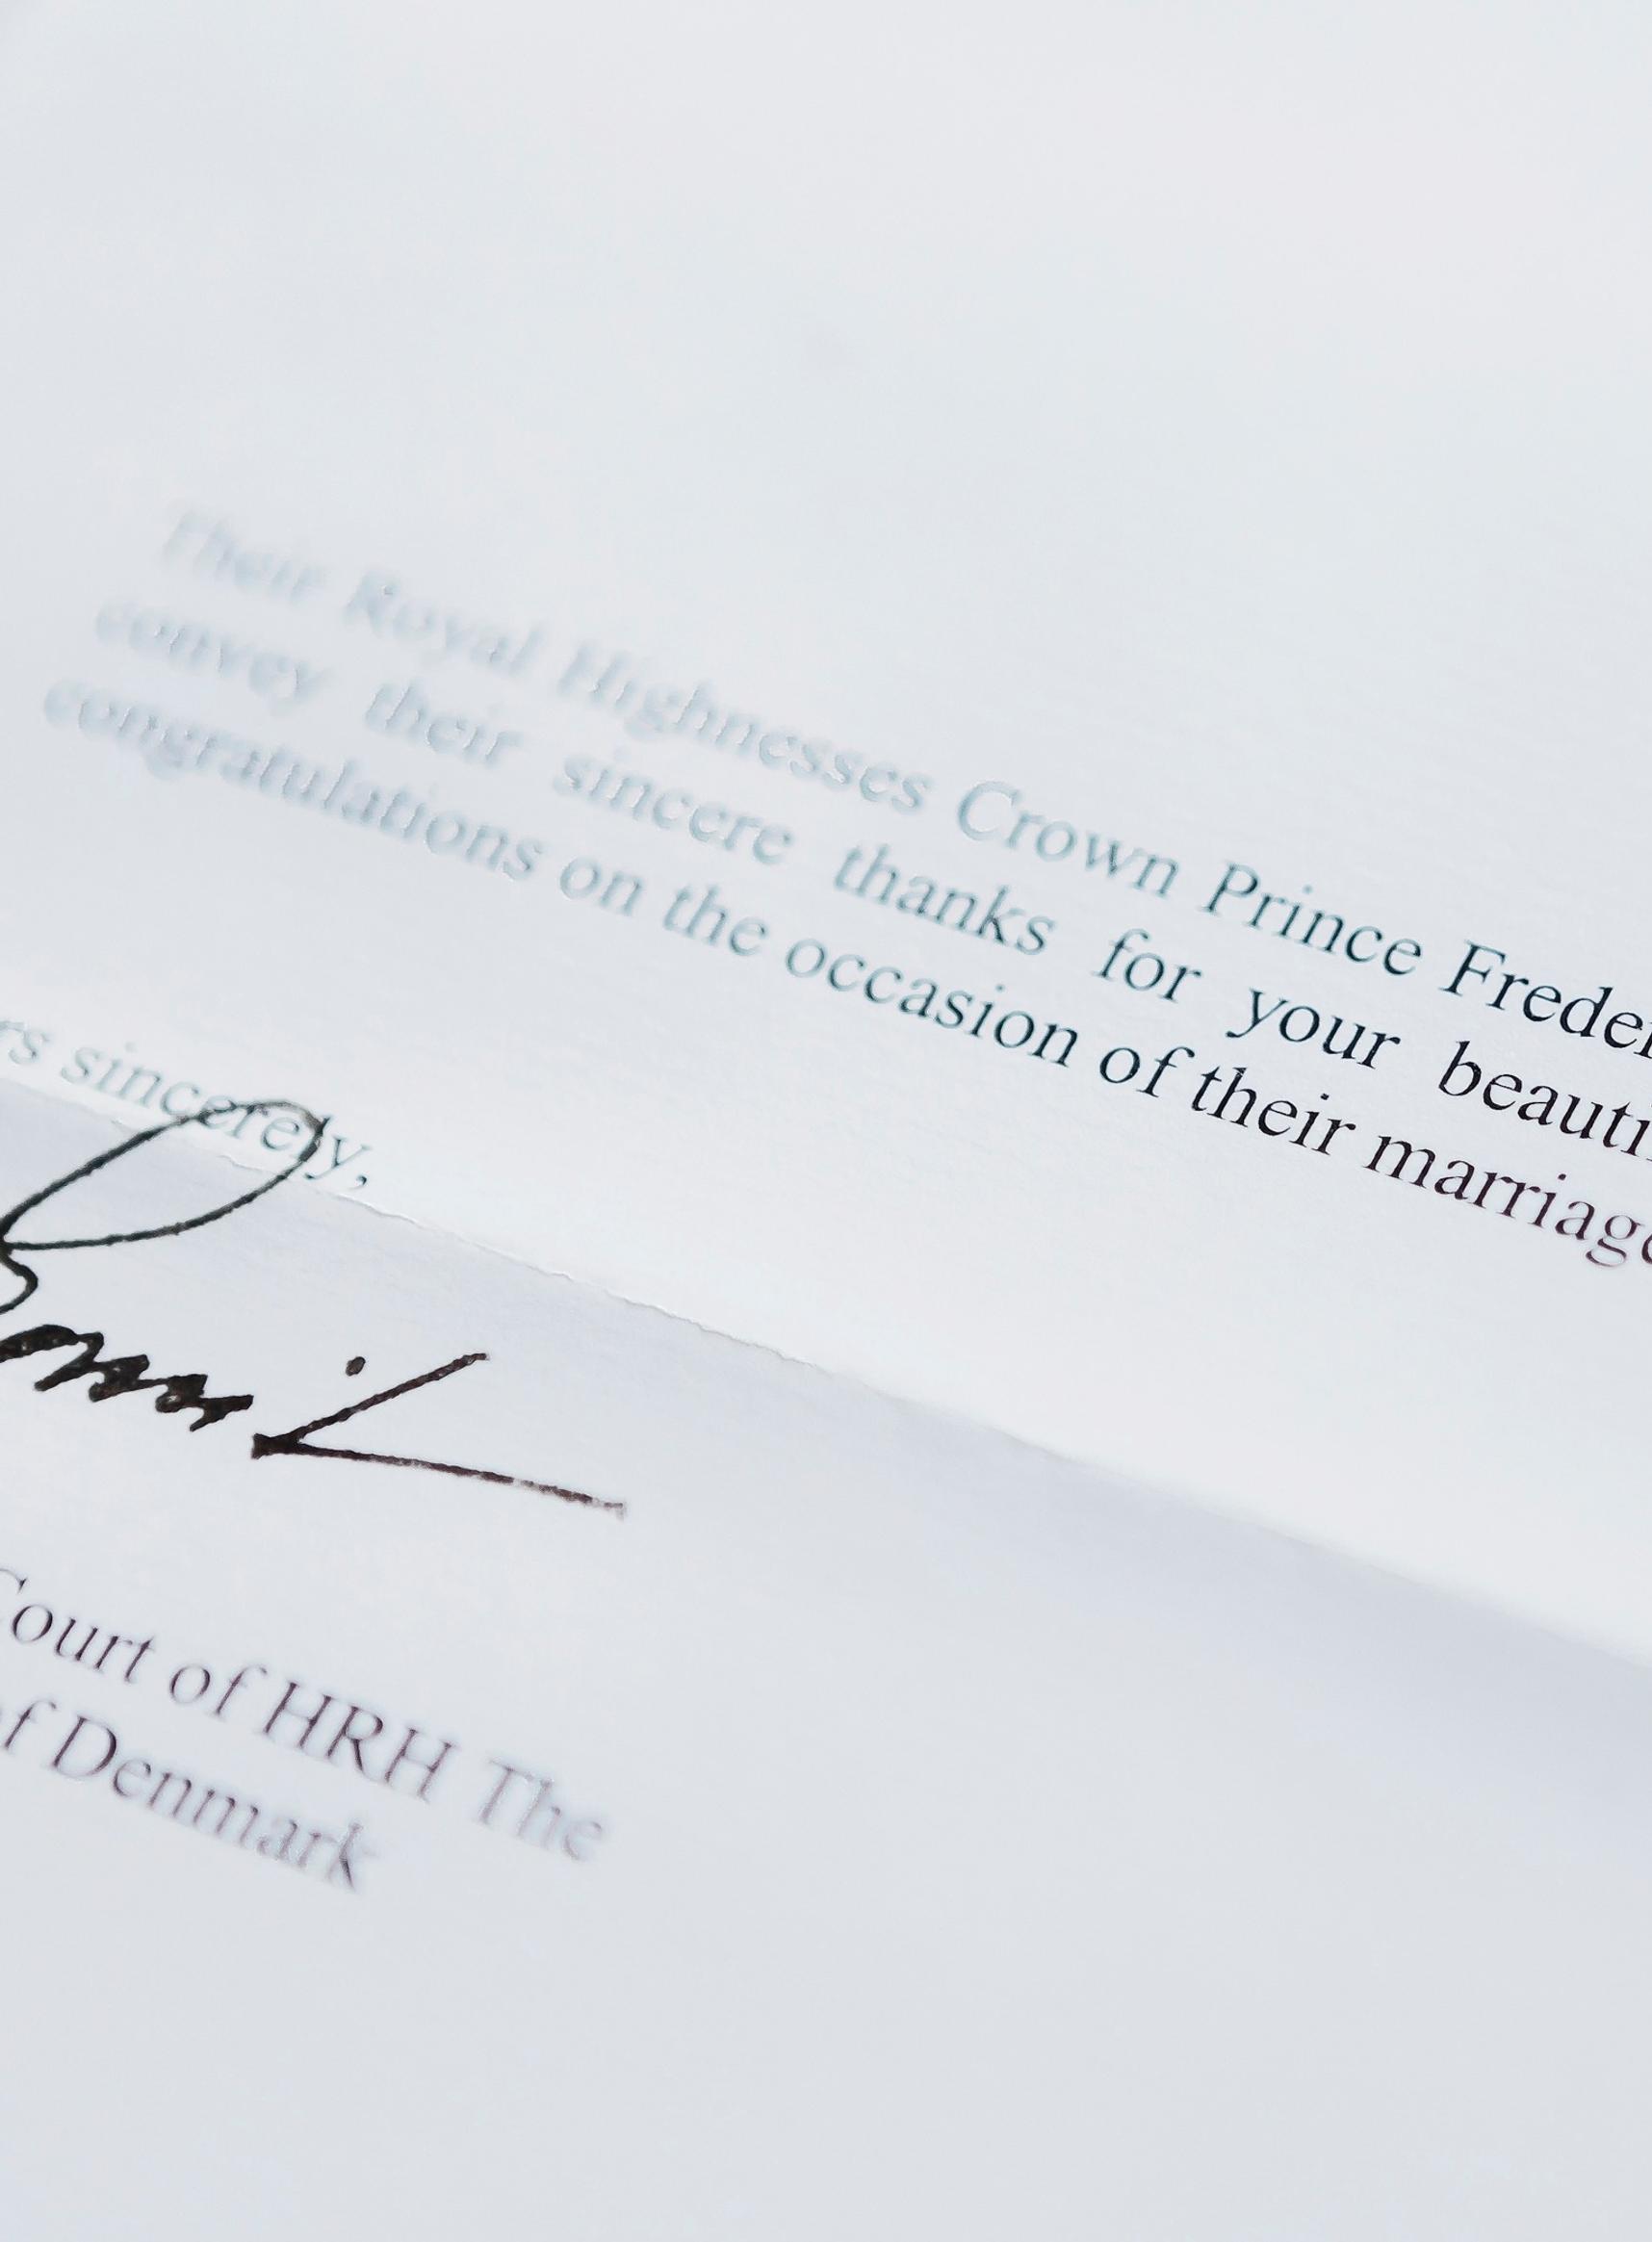 Their Royal Highnesses Crown Prince Freder
convey their sincere thanks for your beauti
congratulations on the occasion of their marriage
rs sincerely,
Court of HRH The
of Denmark